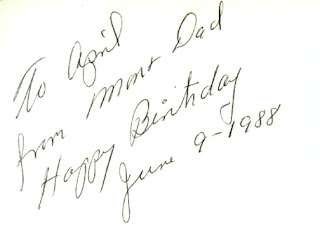 To April
from Mom & Dad
Happy Birthday
June 9-1988